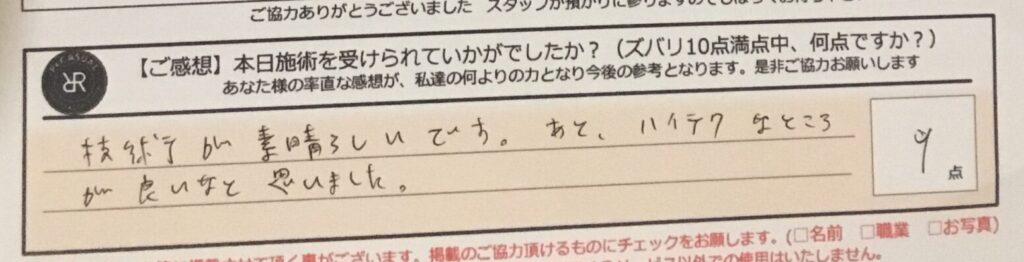 ご協力ありがとうございました スタッフが預かりに参りますので
【ご感想】本日施術を受けられていかがでしたか？（ズバリ10点満点中、何点ですか？）
あなた様の率直な感想が、私達の何よりの力となり今後の参考となります。是非ご協力お願いします
技術が素晴らしいです。あと、ハイテクなところ
が良いなと思いました。
9点
掲載のご協力頂けるものにチェックをお願します。(□名前 □職業 □お写真)
以外での使用はいたしません。